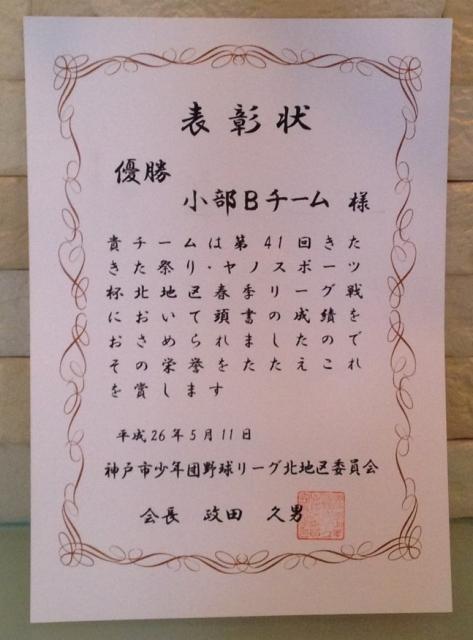 表彰状
優勝
小部Bチーム 様
貴チームは第41回きた
きた祭り・ヤノスポーツ
杯北地区春季リーグ戦
において頭書の成績を
おさめられましたので
その栄挙をたたえこれ
を賞します
平成26年5月11日
神戸市少年団野球リーグ北地区委員会
会長 政田 久男